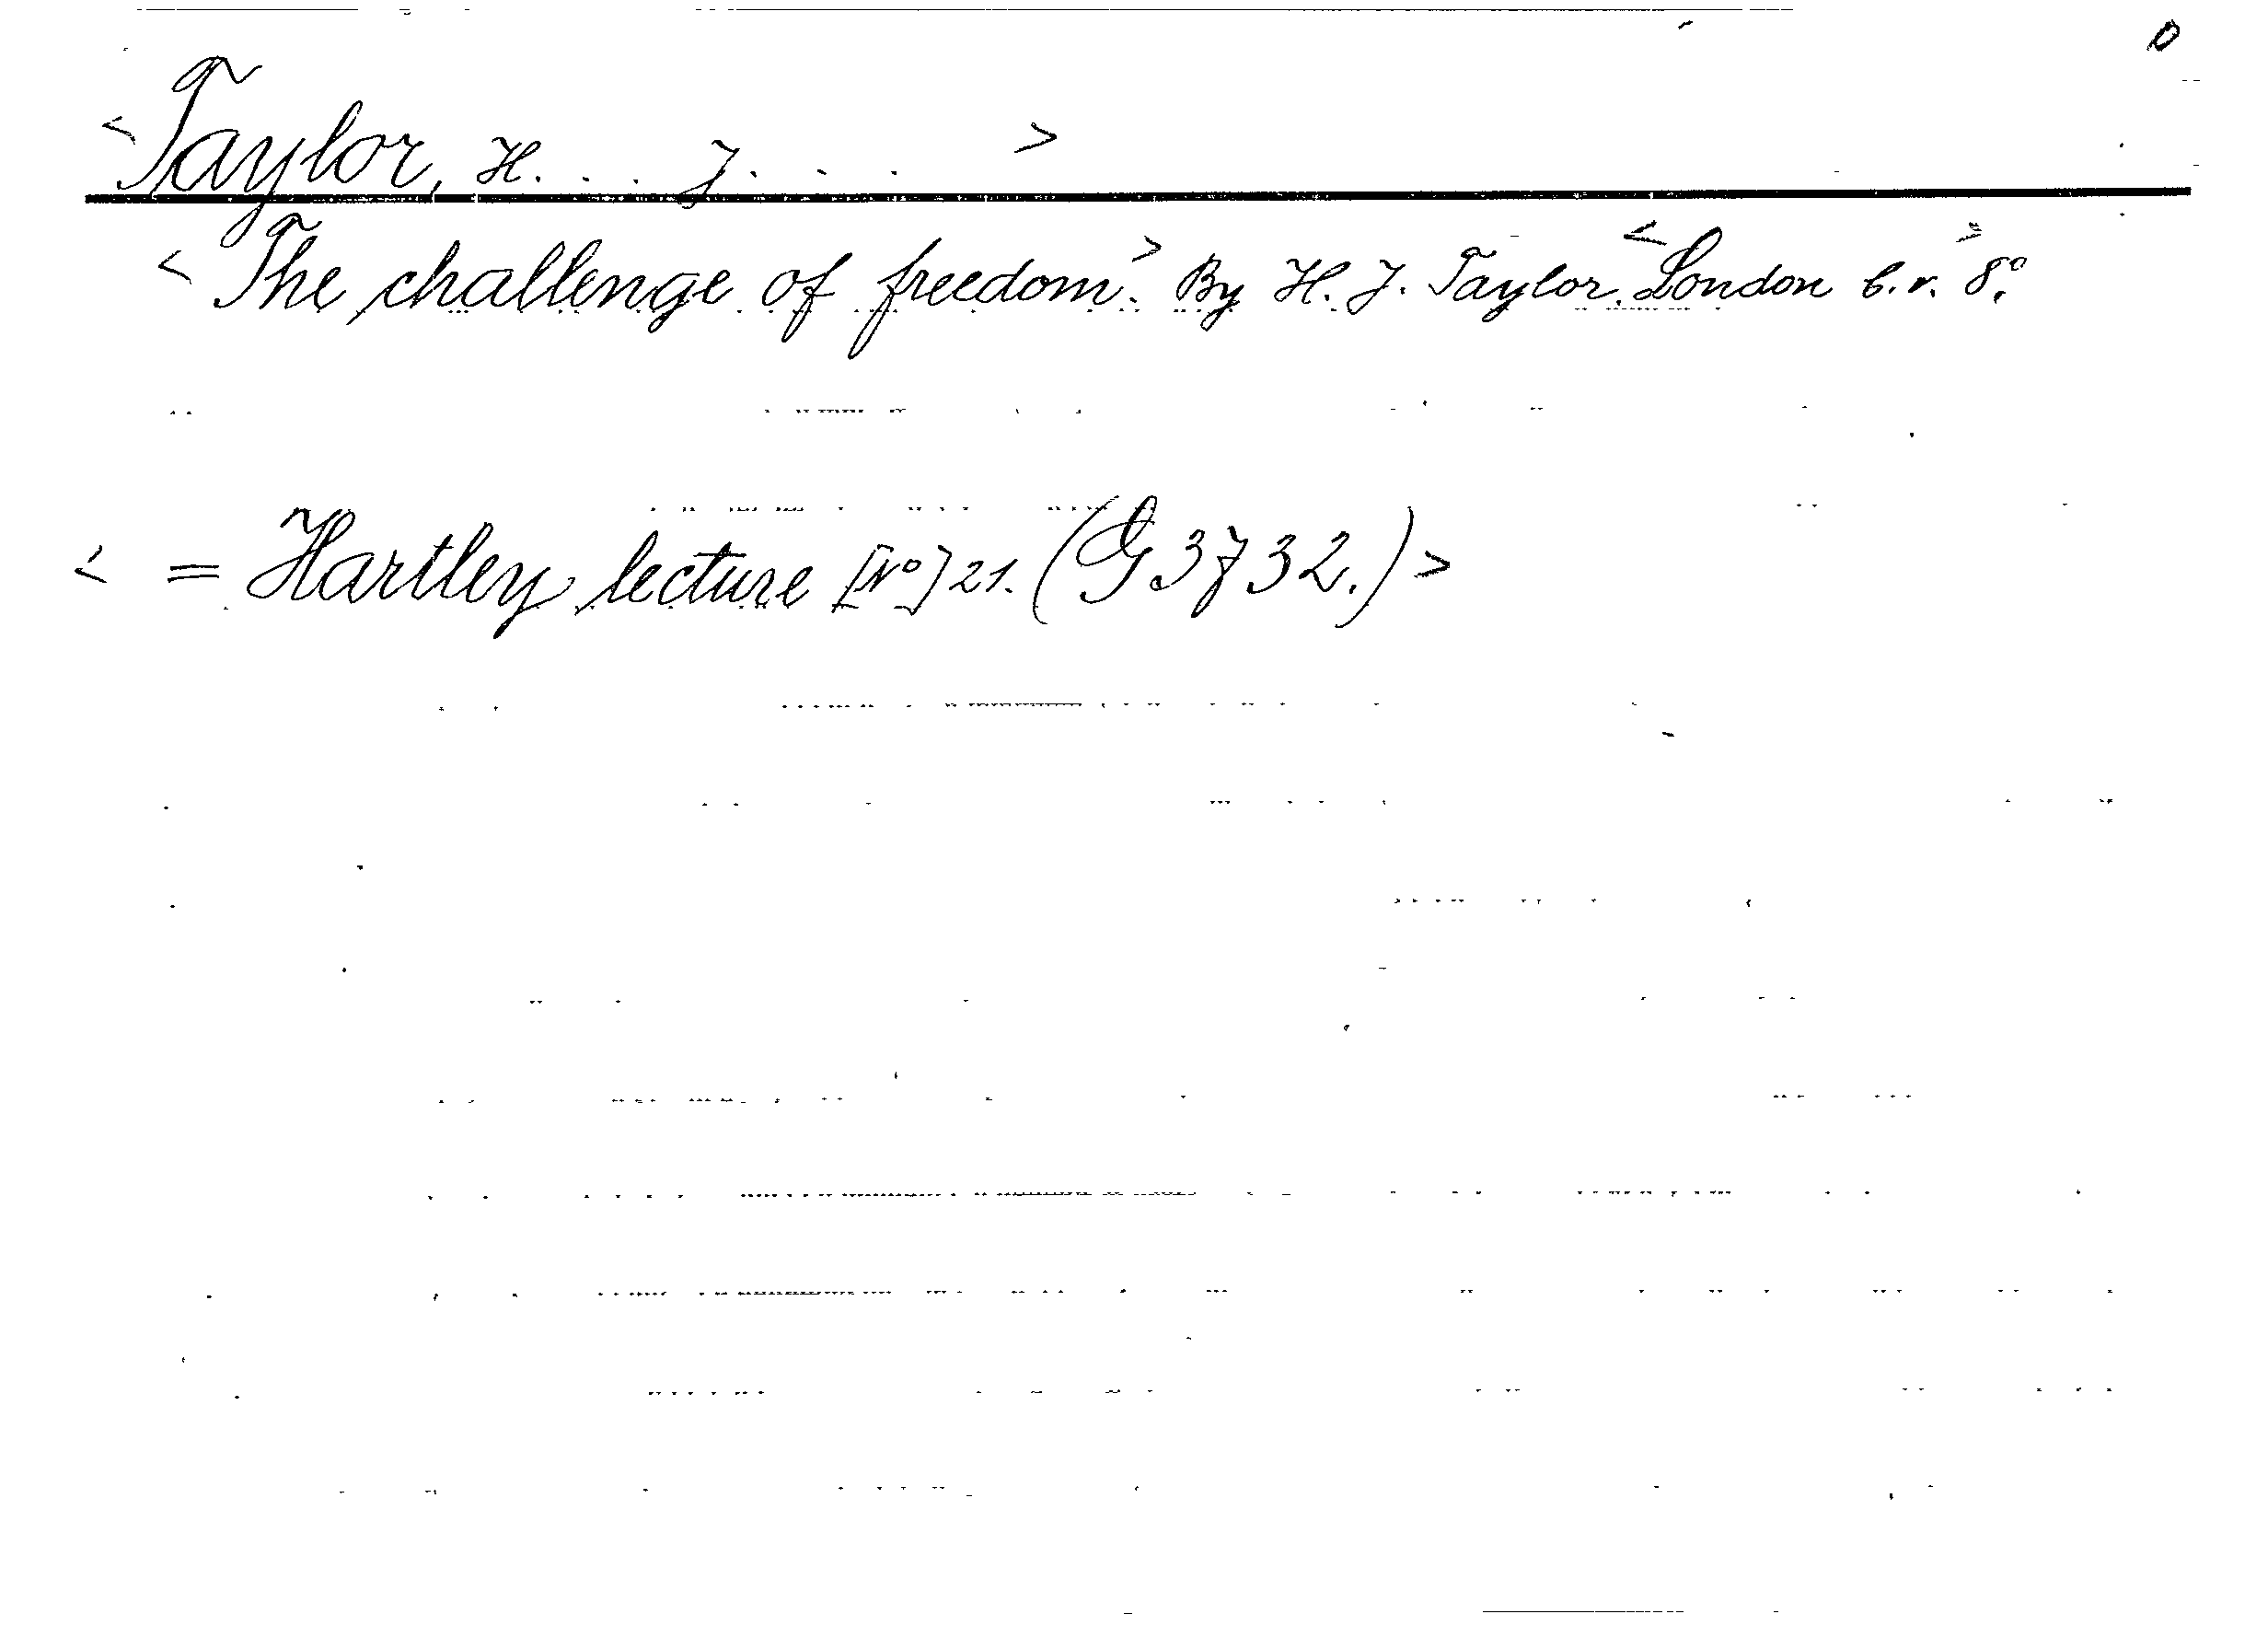 0
<Taylor, H. . . J. . . >
<The challenge of freedom.> By H. J. Taylor. <London b.r. 8º.>
<= Hartley lecture [Nº] 21. (G 3732.)>